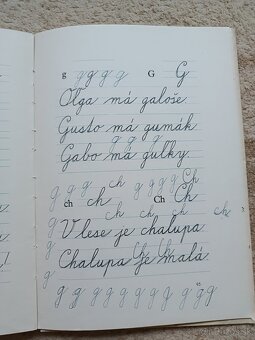 g g g g g G G
Oľga má galoše.
Gusto má gumák.
g g g g
Gabo má guľky.
g g g ch g g g g Ch
ch ch Ch Ch
g ch ch ch ch
V lese je chalupa.
g Ch Ch
Chalupa je malá.
g g g g g g g g g g